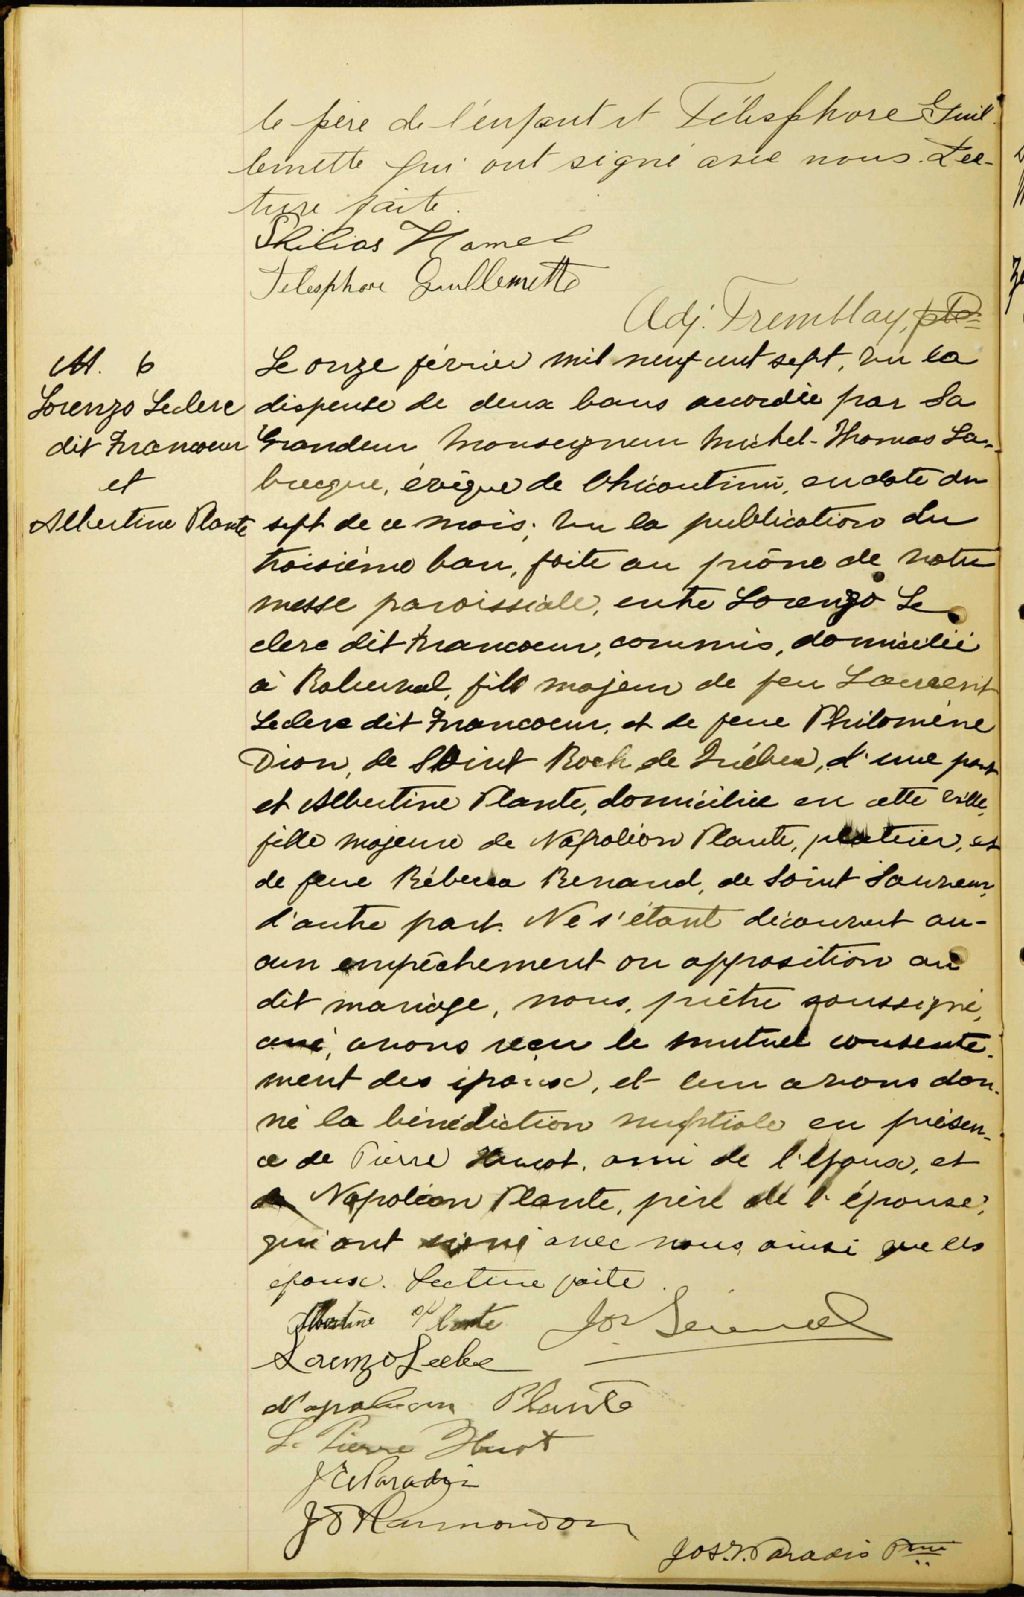 le père de l'enfant et Télesphore Guil-
lemette qui ont signé avec nous. Lec-
ture faite.
Philias Hamel
Télesphore Guillemette
Adj. Tremblay, ptre
M. 6
Lorenzo Leclerc
dit Francoeur
et
Albertine Plante
Le onze février mil neuf cent sept, vu la
dispense de deux bans accordée par Sa
Grandeur Monseigneur Michel-Thomas La-
brecque, évêque de Chicoutimi, en date du
sept de ce mois; vu la publication du
troisième ban, faite au prône de notre
messe paroissiale, entre Lorenzo Le
clerc dit Francoeur, commis, domicilié
à Roberval, fils majeur de feu Laurent
Leclerc dit Francoeur, et de feue Philomène
Dion, de Saint Roch de Québec, d'une part
et Albertine Plante, domiciliée en cette ville,
fille majeure de Napoléon Plante, platrier, et
de feue Rébecca Renaud, de Saint Sauveur,
d'autre part. Ne s'étant découvert au-
cun empêchement ou opposition au
dit mariage, nous, prêtre soussigné,
curé, avons reçu le mutuel consente-
ment des époux, et leur avons don-
né la bénédiction nuptiale en présen-
ce de Pierre Huot, ami de l'époux, et
de Napoléon Plante, père de l'épouse,
qui ont signé avec nous ainsi que les
époux. Lecture faite.
Albertine Plante Jos
Lorenzo Leclerc
Napoleon Plante
L. Pierre Huot
J E Paradis
Jos. Paradis Ptre